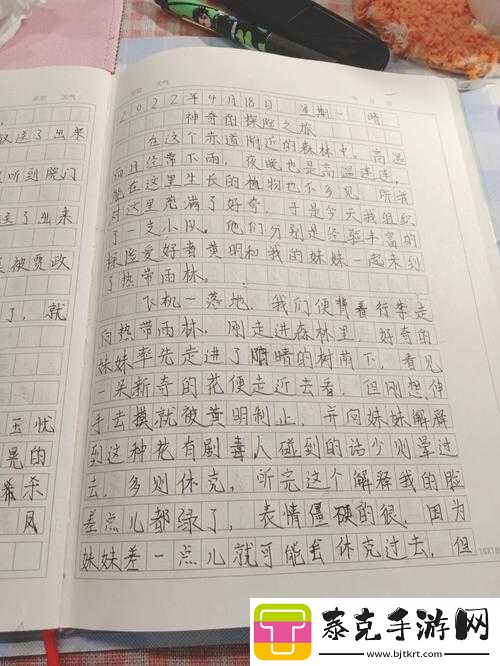 又送了出来
听到院门
送了出来
吴被贾政
了，就
玉忧
晃的
杀
风
2022年4月18日 星期一 晴
神奇的探险之旅
在这个赤道附近的森林中，高温
而且经常下雨，夜晚也是高温连连，
能在这里生长的植物也不多见，所我
对这里充满了好奇，于是今天我组织
了一支小队。他们分别是经验丰富的
探险爱好者黄明和我的妹妹一起来到
了热带雨林。
飞机一落地，我们便背着行李走
向热带雨林，刚走进森林里，好奇的
妹妹率先走进了暗的树荫下，看见
一朵新奇的花便走近去看，但刚想伸
手去摸就被黄明制止，并向妹妹解释
到这种花有剧毒人碰到的话少则晕过
去，多则休克，听完这个解释我的脸
差点儿都绿了，表情僵硬的很，因为
妹妹差一点儿就可能去休克过去，但
18X18
泰克手游网
www.bjtkrt.com